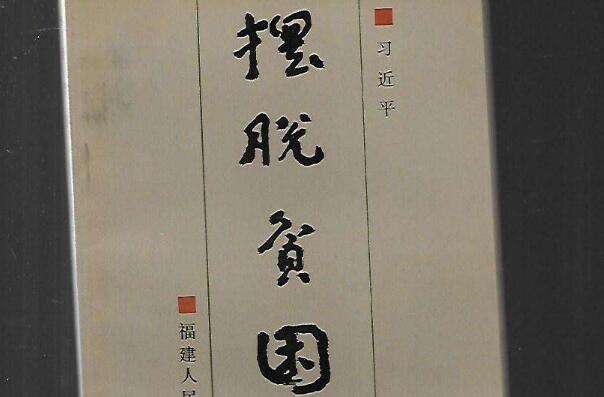 习近平
摆脱贫困
福建人民